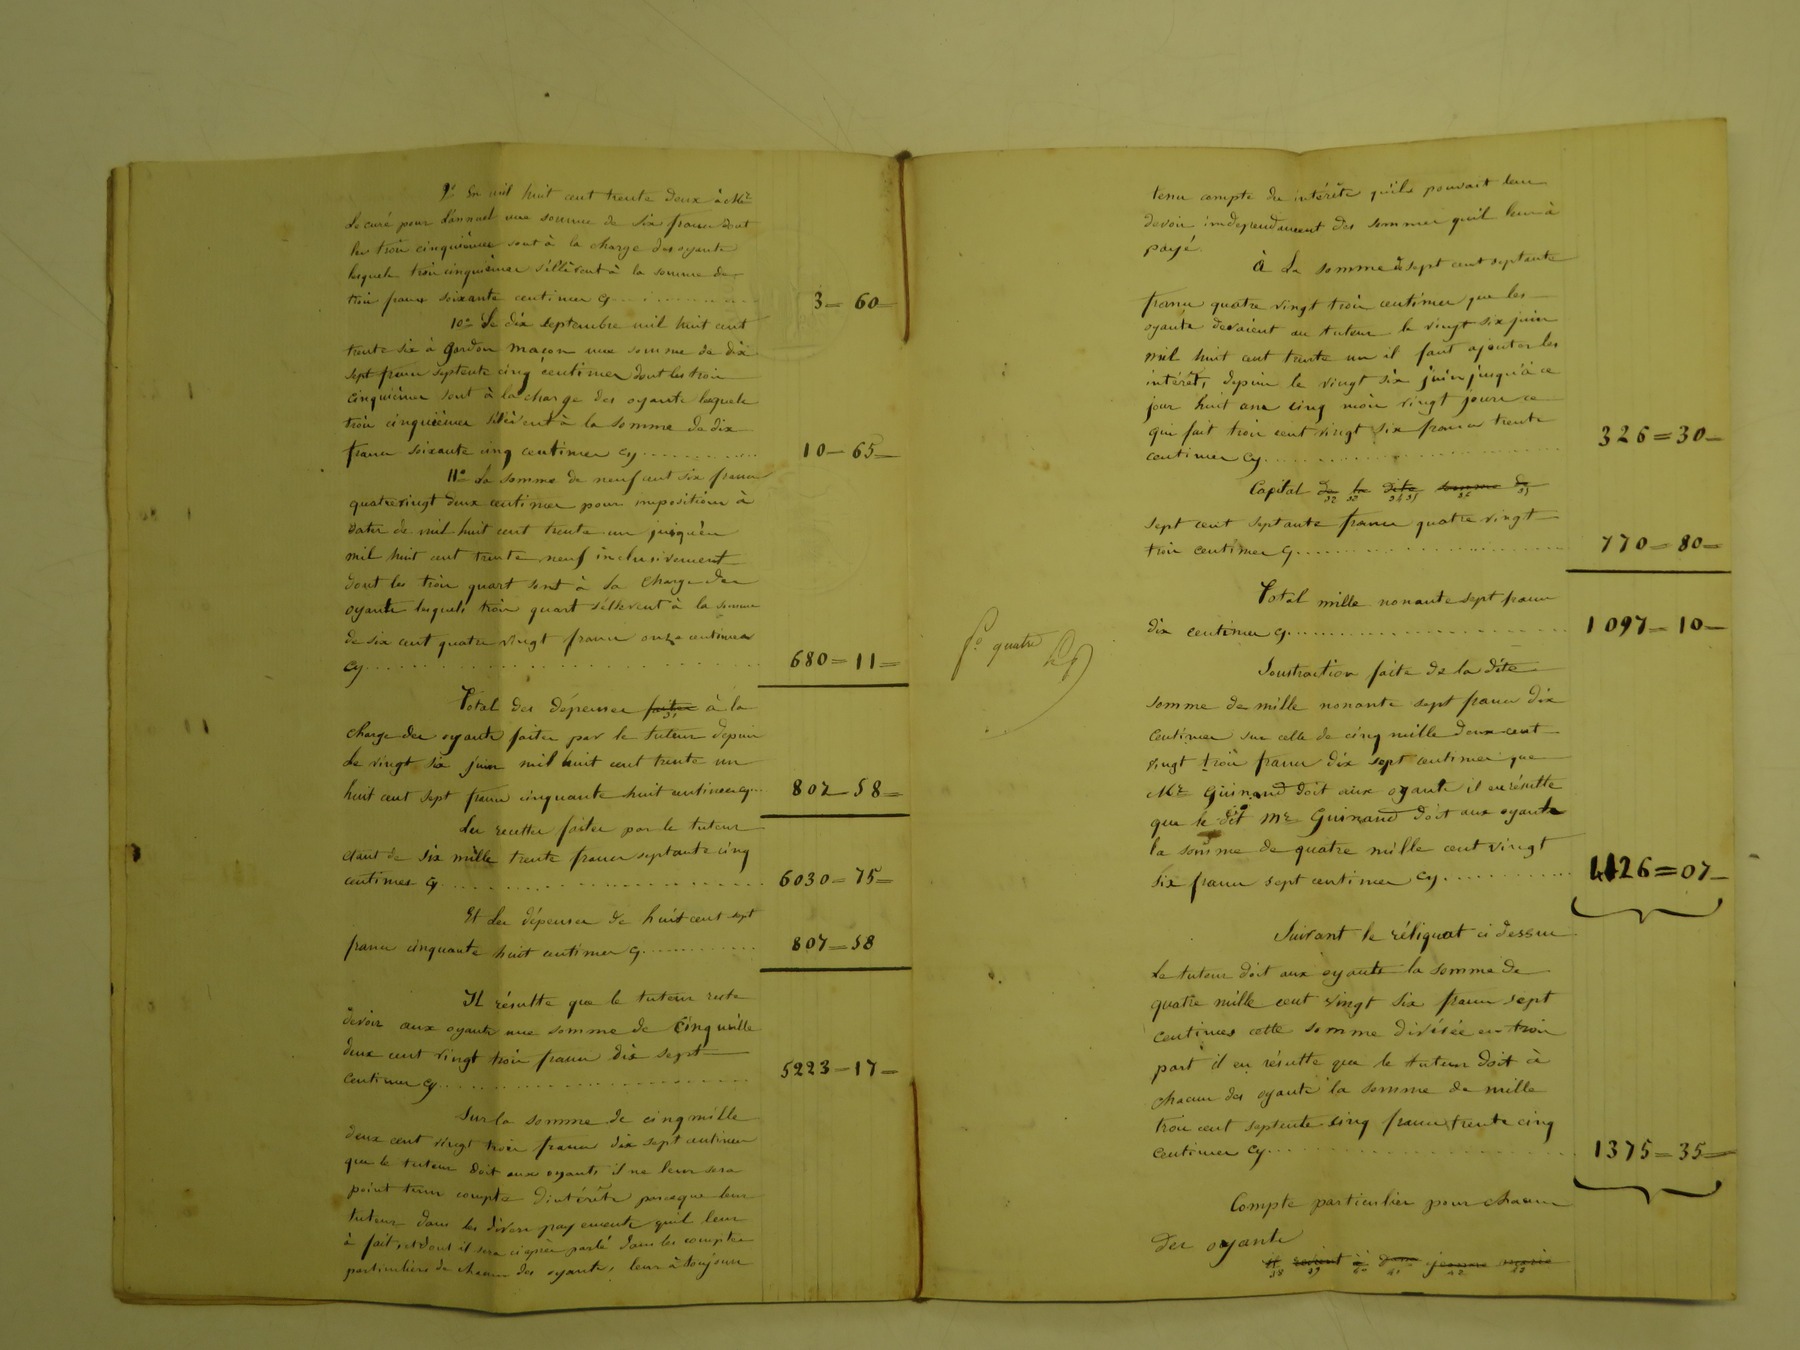 9° En mil huit cent trente deux à Mr
Le curé pour l'annuel une somme de six francs dont
les trois cinquièmes sont à la charge des oyants
lesquels trois cinquièmes s'élèvent à la somme de
trois francs soixante centimes cy 3=60
10° Le dix septembre mil huit cent
trente six à Gardon maçon une somme de dix
sept francs septente cinq centimes dont les trois
cinquièmes sont à la charge des oyants lesquels
trois cinquièmes s'élèvent à la somme de dix
francs soixante cinq centimes cy 10=65
11° La somme de neuf cent six francs
quatrevingt deux centimes pour impositions à
dater de mil huit cent trente un jusqu'en
mil huit cent trente neuf inclusivement
dont les trois quart sont à la charge des
oyants lesquels trois quart s'élèvent à la somme
de six cent quatre vingt francs onze centimes
cy 680=11=
Total des dépenses faites à la
31
charge des oyants faites par le tuteur depuis
Le vingt six juin mil huit cent trente un
huit cent sept francs cinquante huit centimes cy 807=58=
Les recettes faites par le tuteur
étant de six mille trente francs septante cinq
centimes cy 6030=75=
Et Les dépenses de huit cent sept
francs cinquante huit centimes cy 807=58
Il résulte que le tuteur reste
devoir aux oyants une somme de cinq mille
deux cent vingt trois francs dix sept
centimes cy 5223=17=
Sur la somme de cinq mille
deux cent vingt trois francs dix sept centimes
que le tuteur doit aux oyants il ne leur sera
point tenu compte d'intérêts parceque leur
tuteur dans les divers payements qu'il leur
à fait, et dont il sera ciaprès parlé dans les comptes
particuliers de chacun des oyants, leur à toujours
tenu compte des intérêts qu'ils pouvait leur
devoir indépendament des sommes qu'il leur à
payé.
À La somme de sept cent septante
francs quatre vingt trois centimes que les
oyants devaient au tuteur le vingt six juin
mil huit cent trente un il faut ajouter les
intérêts depuis le vingt six juin jusqu'à ce
jour huit ans cinq mois vingt jours ce
qui fait trois cent vingt six francs trente
centimes cy 326=30=
Capital de la dite somme de
32 33 34 35 36 37
sept cent septante francs quatre vingt
trois centimes cy 770=80=
Total mille nonante sept francs
dix centimes cy 1097=10=
fo quatre
Soustraction faite de la dite
somme de mille nonante sept francs dix
centimes sur celle de cinq mille deux cent
vingt trois francs dix sept centimes que
Mr Guinand doit aux oyants il en résulte
que le dit Mr Guinand doit aux oyants
la somme de quatre mille cent vingt
six francs sept centimes cy 4126=07=
Suivant le réliquat ci dessus
Le tuteur doit aux oyants la somme de
quatre mille cent vingt six francs sept
centimes cette somme divisée en trois
part il en résulte que le tuteur doit à
chacun des oyants la somme de mille
trois cent septente cinq francs trente cinq
centimes cy 1375=35=
Compte particulier pour chacun
des oyants
il revient à dame jeanne marie
38 39 40 41 42 43